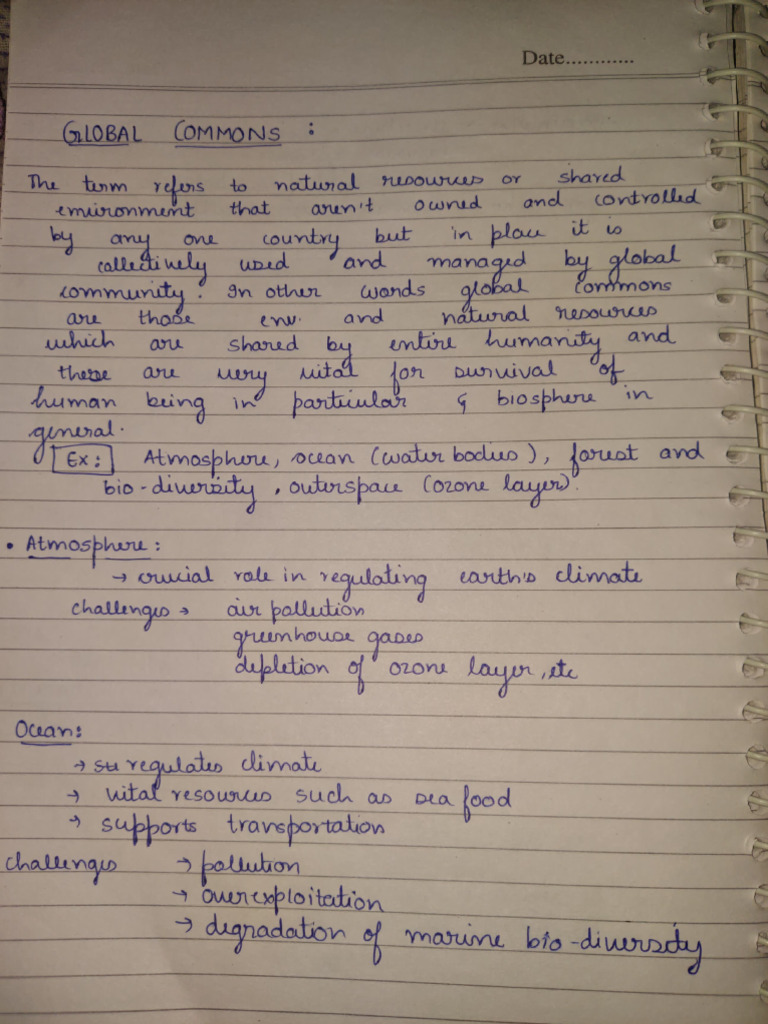 Date............
GLOBAL COMMONS :
The term refers to natural resources or shared
environment that aren't owned and controlled
by any one country but in place it is
collectively used and managed by global
community. In other words global commons
are those env. and natural resources
which are shared by entire humanity and
these are very vital for survival of
human being in particular & biosphere in
general.
Ex: Atmosphere, ocean (water bodies), forest and
bio-diversity, outerspace (ozone layer).
• Atmosphere:
→ crucial role in regulating earth's climate
challenges → air pollution
greenhouse gases
depletion of ozone layer, etc
Ocean:
→ regulates climate
→ vital resources such as sea food
→ supports transportation
challenges → pollution
→ overexploitation
→ degradation of marine bio-diversity